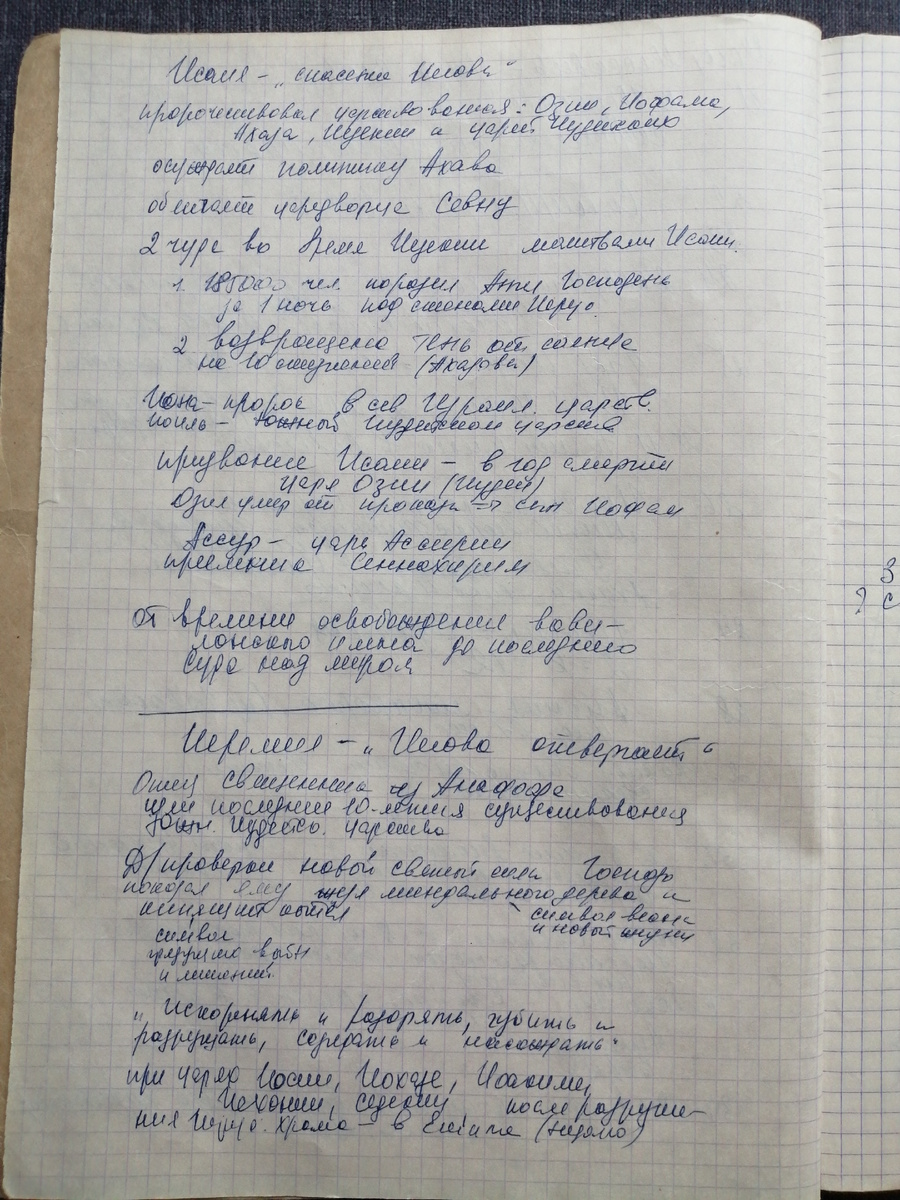 Исаия – „спасение Иеговы"
пророчествовал царствования: Озии, Иофама,
Ахаза, Иезекии и царей Иудейских
осуждает политику Ахава
обличает царедворца Севну
2 чуда во время Иезекии молитвами Исаии.
1. 185000 чел. поразил Анг Господень
за 1 ночь под стенами Иерус.
2 возвращено тень от солнца
на 10 ступеней (Ахазова)
Иона – пророк в сев Израил. царств.
Иоиль – южный Иудейском царстве
призвание Исаии – в год смерти
царя Озии (Иудеи)
Озия умер от проказы => сын Иофам
Ассур – царь Ассирии
приемника Сеннахирим
от времени освобождения вави-
лонского плена до последнего
суда над миром
Иеремия – „Иегова отвергает"
Отец священник из Анафофа
последние 10-летия существования
южн. Иудейск. царства
Д/проверки новой своей силы Господь
показал ему жезл миндального дерева и
кипящий котёл
символ весны
и новой жизни
символ
грядущих войн
и лишений
„Искоренять и разорять, губить и
разрушать, созидать и насаждать"
при царях Иосии, Иохазе, Иоакиме,
Иехонии, Седекии, после разруше-
ния Иерус. храма – в Египте (недолго)
З
? С